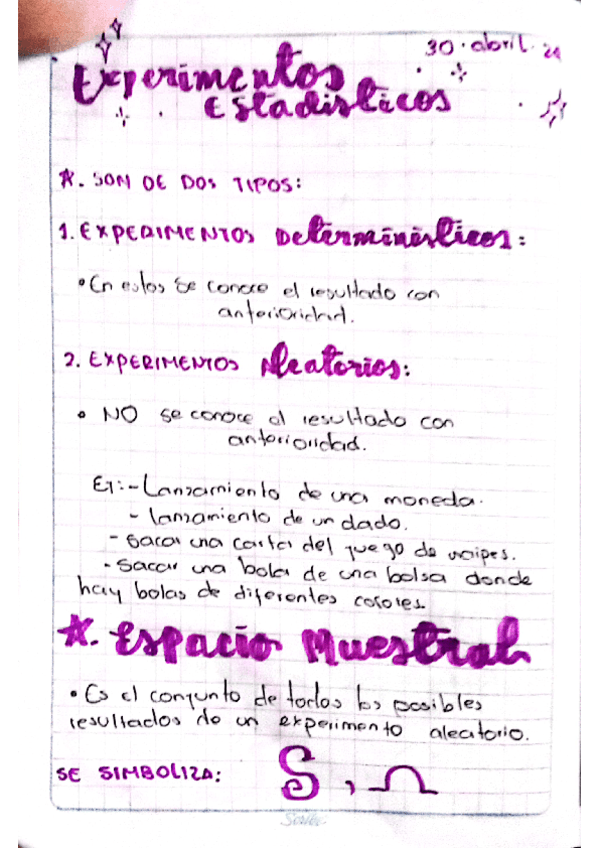 30 · abril · 21
Experimentos
Estadísticos
☆. SON DE DOS TIPOS:
1. EXPERIMENTOS Determinísticos:
• En estos se conoce el resultado con
anterioridad.
2. EXPERIMENTOS Aleatorios:
• NO se conoce el resultado con
anterioridad.
EJ:- Lanzamiento de una moneda.
- lanzamiento de un dado.
- sacar una carta del juego de naipes.
- sacar una bola de una bolsa donde
hay bolas de diferentes colores.
☆. Espacio Muestral
• Es el conjunto de todos los posibles
resultados de un experimento aleatorio.
SE SIMBOLIZA: S , Ω
Scribe